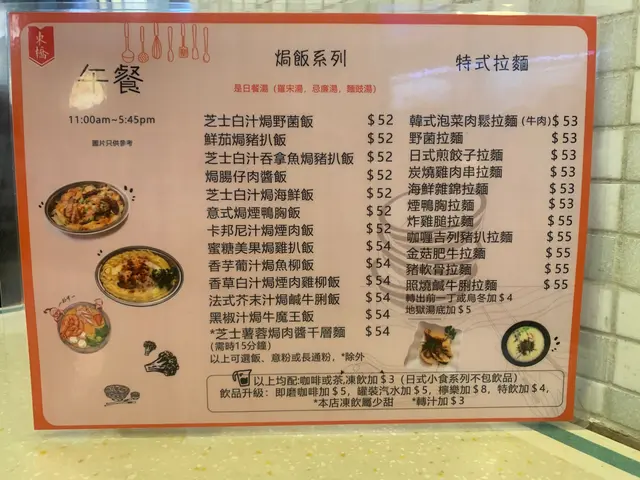 東橋
午餐
11:00am~5:45pm
圖片只供參考
焗飯系列
是日餐湯（羅宋湯，忌廉湯，麵豉湯）
芝士白汁焗野菌飯 $52
鮮茄焗豬扒飯 $52
芝士白汁吞拿魚焗豬扒飯 $52
焗腸仔肉醬飯 $52
芝士白汁焗海鮮飯 $52
意式焗煙鴨胸飯 $52
卡邦尼汁焗煙肉飯 $52
蜜糖美果焗雞扒飯 $54
香芋葡汁焗魚柳飯 $54
香草白汁焗煙肉雞柳飯 $54
法式芥末汁焗鹹牛脷飯 $54
黑椒汁焗牛魔王飯 $54
*芝士薯蓉焗肉醬千層麵 $54
(需時15分鐘)
以上可選飯，意粉或長通粉，*除外
特式拉麵
韓式泡菜肉鬆拉麵(牛肉) $53
野菌拉麵 $53
日式煎餃子拉麵 $53
炭燒雞肉串拉麵 $53
海鮮雜錦拉麵 $53
煙鴨胸拉麵 $53
炸雞髀拉麵 $55
咖喱吉列豬扒拉麵 $55
金菇肥牛拉麵 $55
豬軟骨拉麵 $55
照燒鹹牛脷拉麵 $55
轉出前一丁或烏冬加$4
地獄湯底加$5
以上均配:咖啡或茶,凍飲加$3（日式小食系列不包飲品）
飲品升級：即磨咖啡加$5，罐裝汽水加$5，檸樂加$8，特飲加$4，
*本店凍飲屬少甜 *轉汁加$3